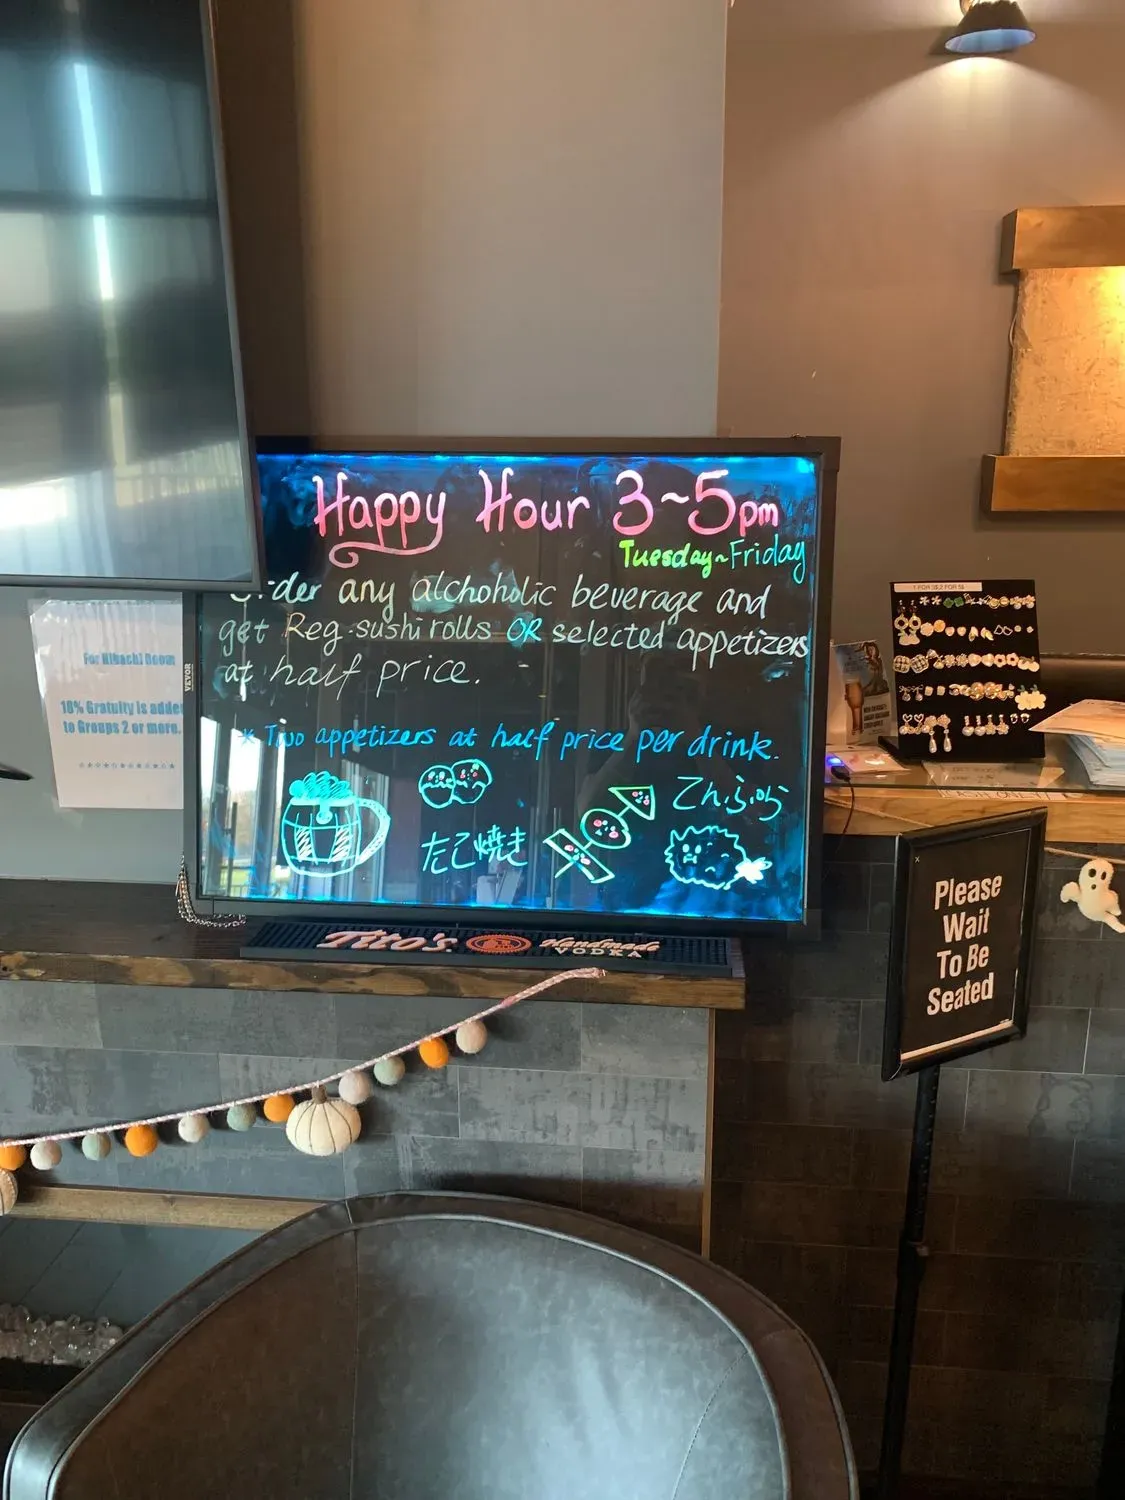 Happy Hour 3~5pm
Tuesday~Friday
any alchoholic beverage and
get Reg. sushi rolls OR selected appetizers
at half price.
* Two appetizers at half price per drink.
たこ焼き
VEVOR
For Hibachi Room
18% Gratuity is added
to Groups 2 or more.
Tito's Handmade
VODKA
1 FOR 3$ 2 FOR 5$
Please
Wait
To Be
Seated